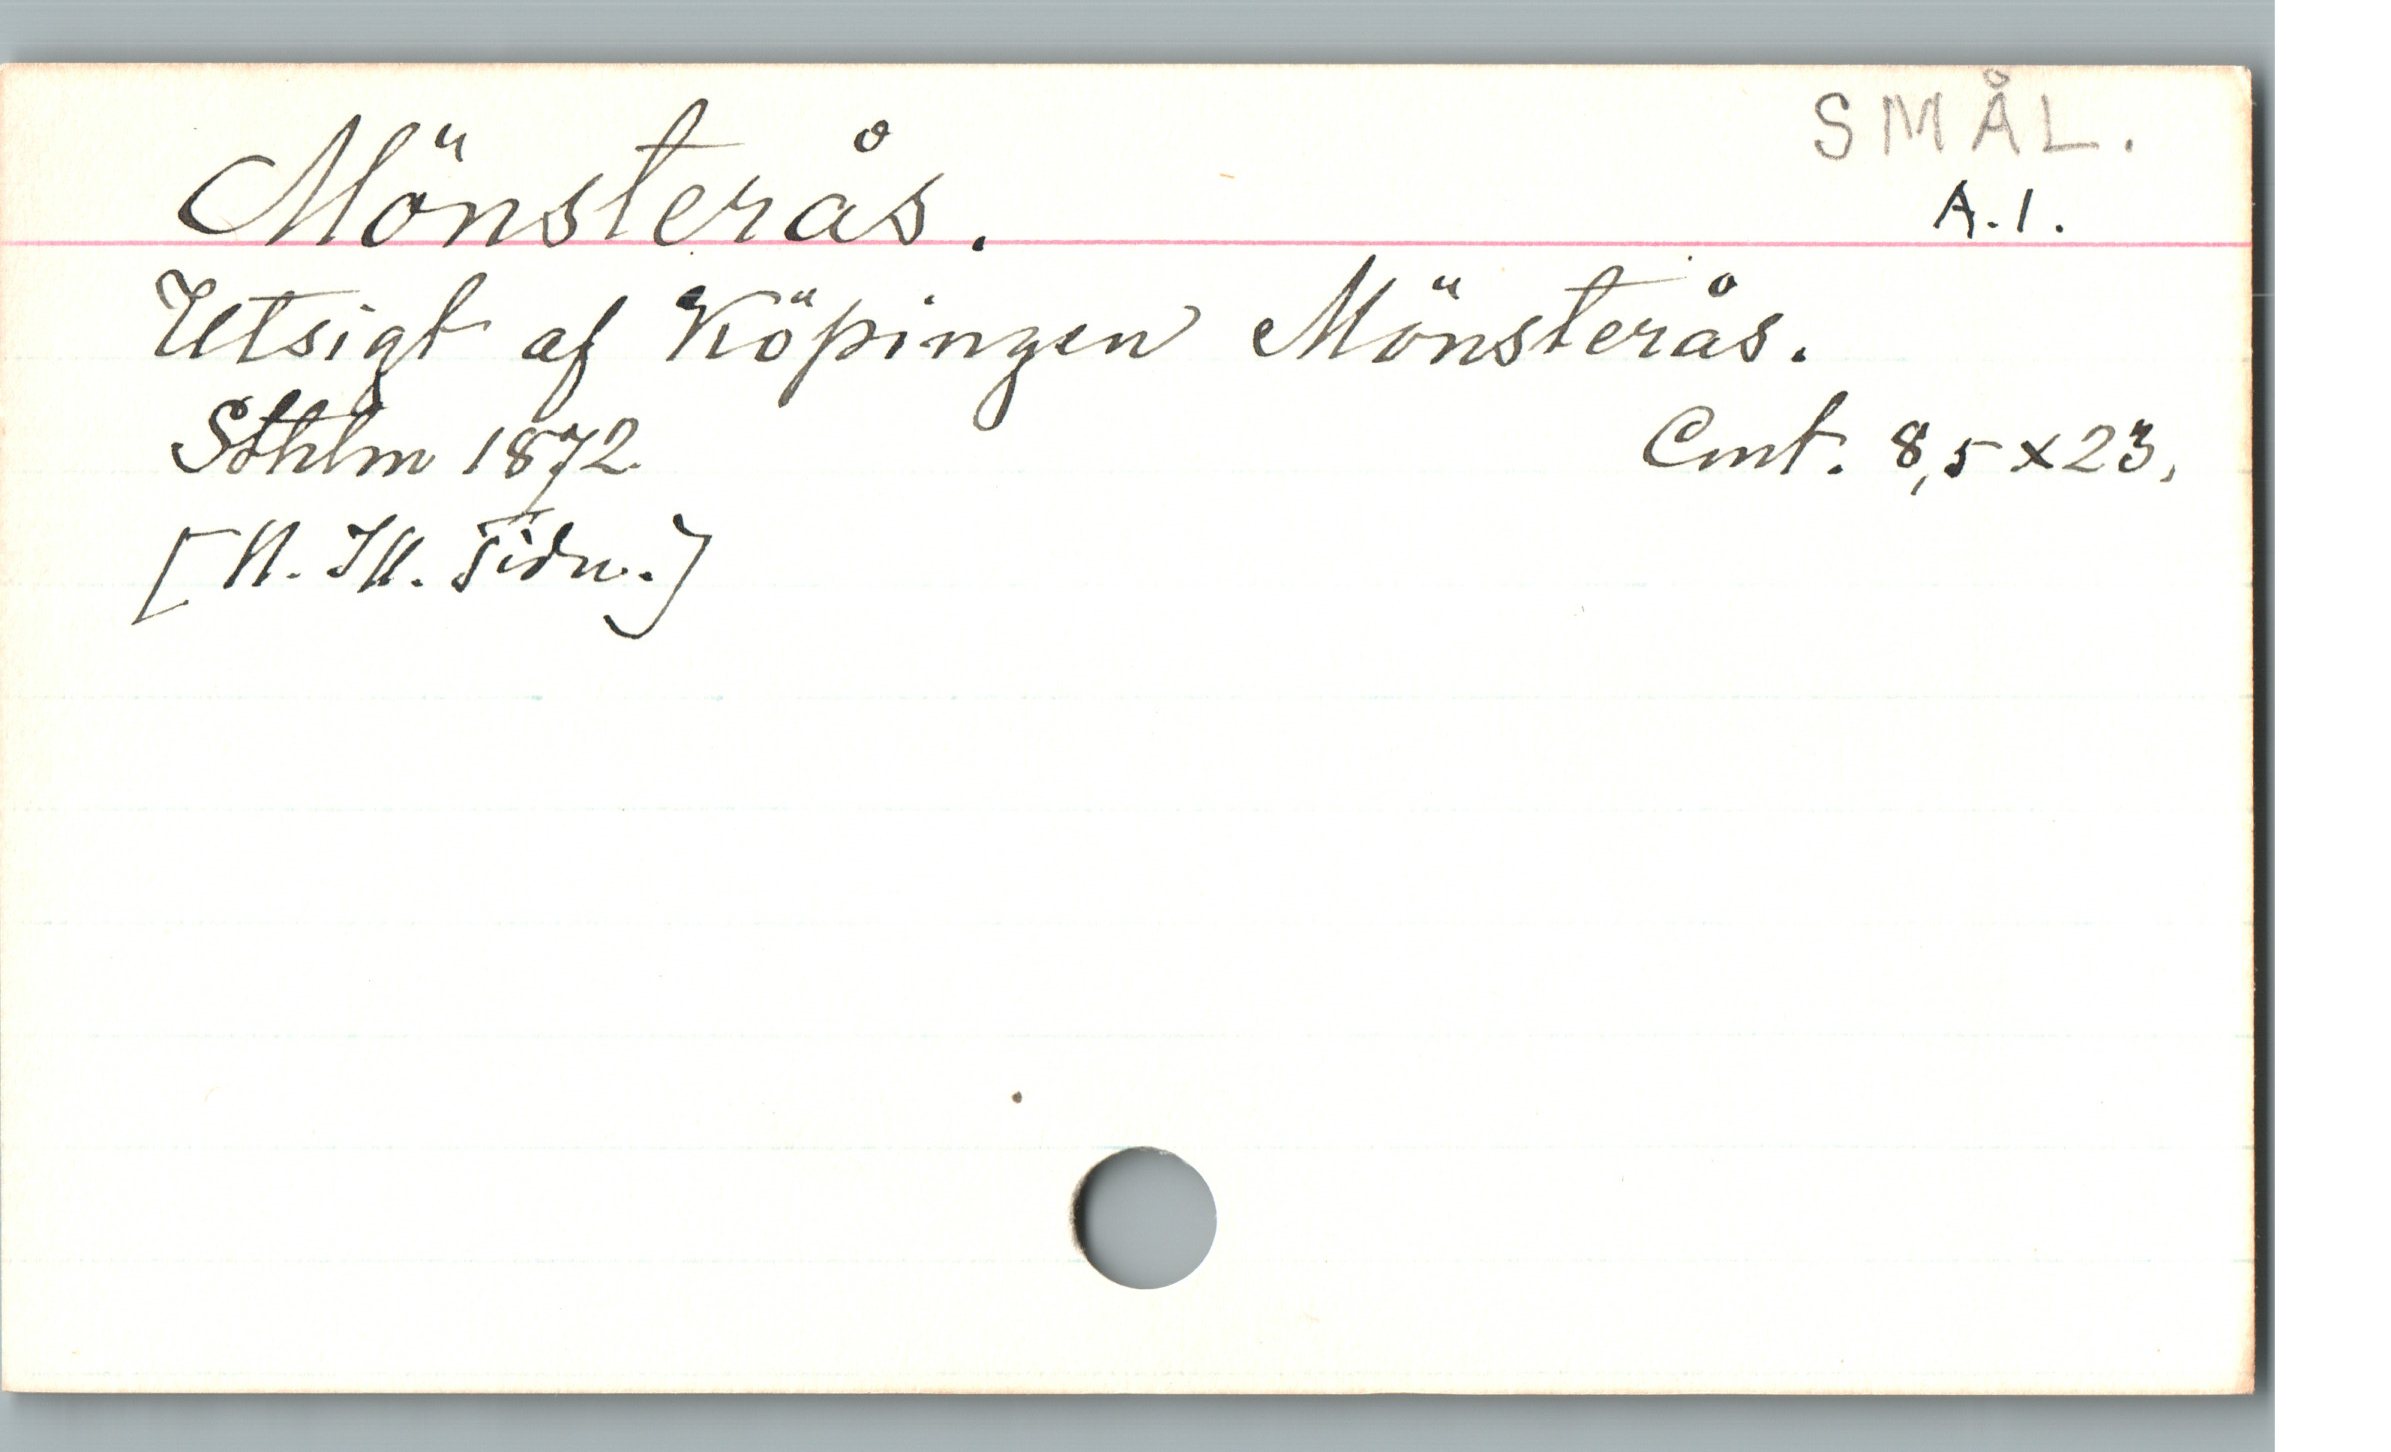 SMÅL.
Mönsterås.
A.1.
Utsigt af Köpingen Mönsterås.
Sthlm 1872.
Cmt. 8,5 x 23.
[N. Ill. Tidn.]